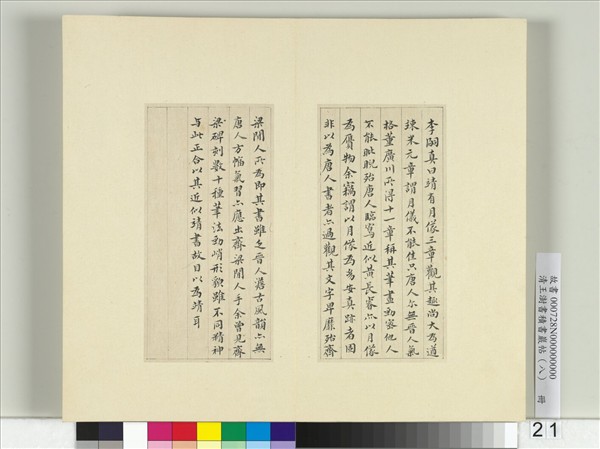 李嗣真曰靖有月儀三章觀其趣尚大為遒
竦米元章謂月儀不能佳只唐人尔無晉人氣
格董廣川所得十一章稱其筆畫勁密他人
不能睥睨殆唐人臨寫近似黃長睿亦以月儀
為贋物余竊謂以月儀為為安真跡者固
非以為唐人書者亦過觀其文字卑靡殆齊
梁間人所為即其書雖乏晉人澹古風韻亦無
唐人方幅氣習亦應出齊梁間人手余曾見齊
梁碑刻數十種筆法勁峭形貌雖不同精神
与此正合以其近似靖書故目以為靖耳
故書000728N000000000
清王澍書積書巖帖(八) 冊
21